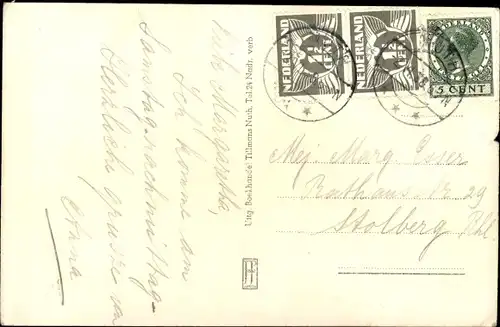 Liebe Margaretha,
Ich komme am
Samstagnachmittag.
Herzliche Grüsse von
Anna
Uitg. Boekhandel Tillmans Nuth, Tel. 24 Nadr. verb.
NEDERLAND
1½
CENT
NEDERLAND
1½
CENT
NEDERLAND
5 CENT
Mej. Marg. Esser
Rathausstr 29
Stolberg Rhl